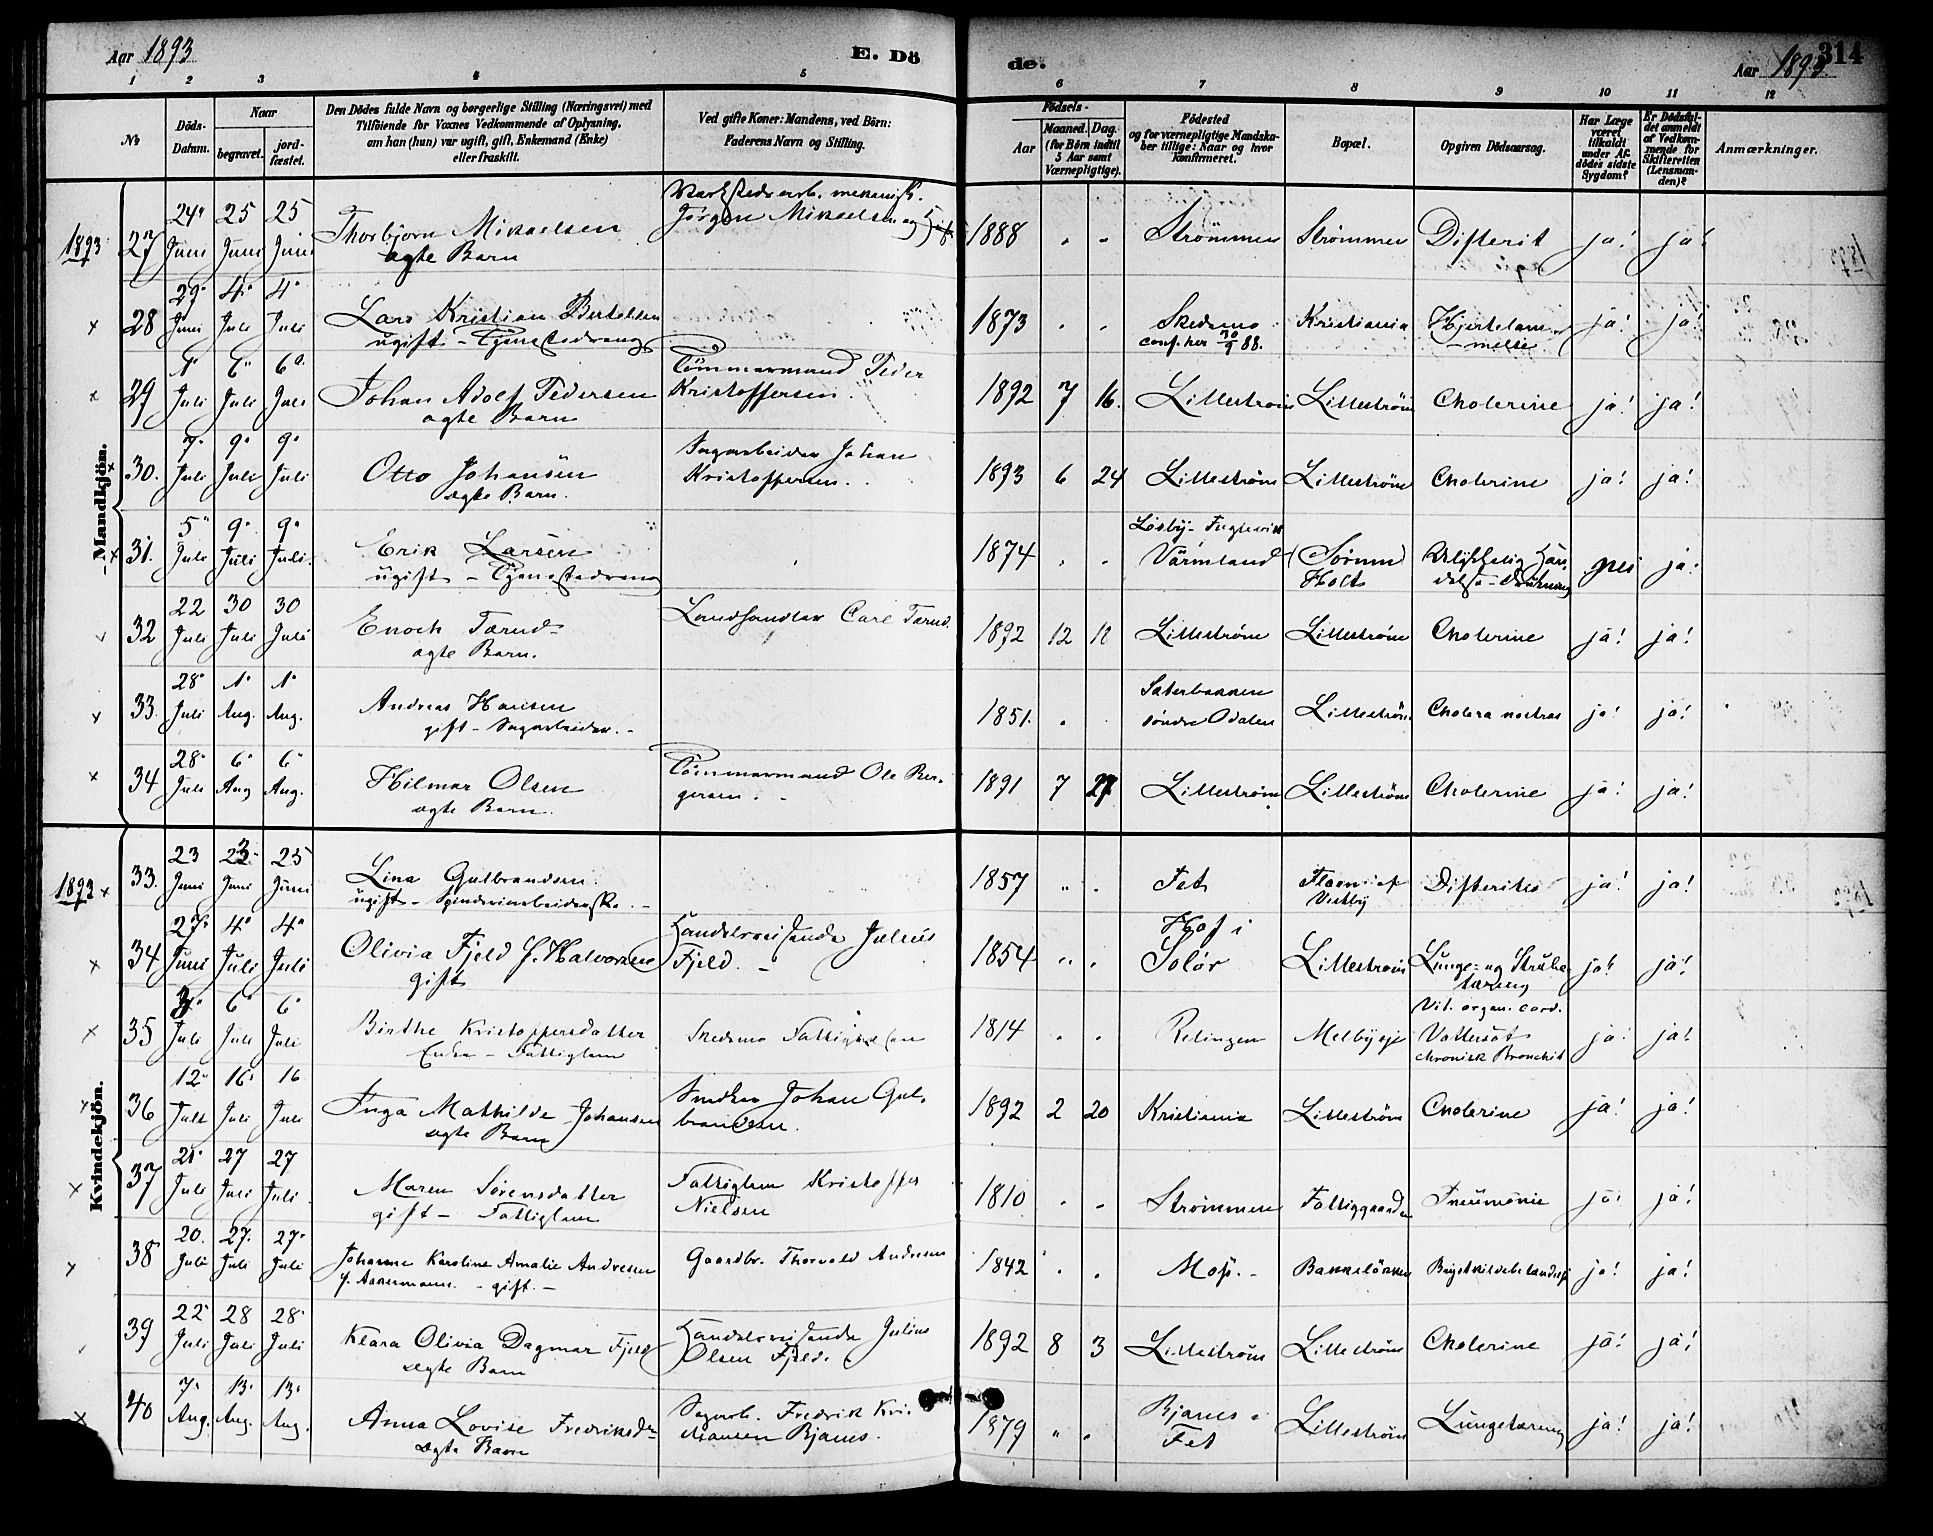 Aar 1893
E. Dö
de.
Aar 1893.
314
1 2 3 4 5 6 7 8 9 10 11 12
№
Döds-Datum.
Naar
begravet.
jord-fæstet.
Den Dödes fulde Navn og borgerlige Stilling (Næringsvei) med
Tilföiende for Voxnes Vedkommende af Oplysning,
om han (hun) var ugift, gift, Enkemand (Enke)
eller fraskilt.
Ved gifte Koner: Mandens, ved Börn:
Faderens Navn og Stilling.
Födsels-
Aar
Maaned. Dag.
(for Börn indtil
5 Aar samt
Værnepligtige).
Födested
og for værnepligtige Mandska-
ber tillige: Naar og hvor
konfirmeret.
Bopæl.
Opgiven Dödsaarsag.
Har Læge
været
tilkaldt
under Af-
dödes sidste
Sygdom?
Er Dödsfal-
det anmeldt
af Vedkom-
mende for
Skifteretten
(Lensman-
den)?
Anmærkninger.
Mandkjön.
1893 27 24 Juni 25 Juni 25 Juni Thorbjørn Mikaelsen
ægte Barn
Jørgen Mikaelsen
1888 " " Strømmen Strømmen Difterit ja! ja!
28 29 Juni 4 Juli 4 Juli Lars Kristian Bertelsen
ugift - Tjenestedreng
1873 " " Skedsmo
conf. her 30/9 88.
Kristiania Hjertelam-
melse ja! ja!
29 1 Juli 6 Juli 6 Juli Johan Adolf Pedersen
ægte Barn
Tömmermand Peder
Kristoffersen.
1892 7 16. Lillestrøm Lillestrøm Cholerine ja! ja!
30. 7 Juli 9 Juli 9 Juli Otto Johansen
ægte Barn.
Sagarbeider Johan
Kristoffersen.
1893 6 24 Lillestrøm Lillestrøm Cholerine ja! ja!
31. 5 Juli 9 Juli 9 Juli. Erik Larsen
ugift - Tjenestedreng
1874 " " Värmland (Sørum)
Holt
nei ja!
32 22 Juli 30 Juli 30 Juli Enoch Tærud
ægte Barn.
Landhandler Carl Tærud.
1892 12 11 Lillestrøm Lillestrøm Cholerine ja! ja!
33. 28 Juli 1 Aug. 1 Aug. Andreas Hansen
gift - Sagarbeider. -
1851. " Sæterbakken
søndre Odalen
Lillestrøm Cholera nostras ja! ja!
34 28 Juli 6 Aug 6 Aug. Hilmar Olsen
ægte Barn.
Tömmermand Ole Bir-
gersen. -
1891 7 27 Lillestrøm Lillestrøm Cholerine ja! ja!
Kvindekjön.
1893 33. 23 Juni 25 Juni 25 Juni Lina Gulbrandsen.
ugift - Spinderiarbeiderske. -
1857 " " Fet
Vestby
Difterites ja! ja!
34 27 Juni 4 Juli 4 Juli Olivia Fjeld f. Halvorsen
gift
Handelsreisende Julius
Fjeld. -
1854 " " Hof i
Solør
Lillestrøm Lunge- og Strube-
tæring
ja! ja!
35 3 Juli 6 Juli 6 Juli Birthe Kristoffersdatter
Enke - Fattiglem
Skedsmo Fattigvæsen
1814 " " Relingen Melbyeje Vit. organ. cord.
Vattersot
chronisk Bronchit
ja! ja!
36 12 Juli 16 Juli 16 Juli Inga Mathilde Johansen
ægte Barn
Snedker Johan Gul-
brandsen.
1892 2 20 Kristiania Lillestrøm Cholerine ja! ja!
37 21 Juli 27 Juli 27 Juli Maren Sørensdatter
gift - Fattiglem
Fattiglem Kristoffer
Nielsen
1810 " " Strømmen Fattiggaarden Pneumonie ja! ja!
38 20. Juli 27. Juli 27 Juli Johanne Karoline Amalie Andresen
f. Aakermann. - gift. -
Gaardbr. Thorvald Andresen
1842 " " Moss. - Bakkeløkken ja! ja!
39 22 Juli 28 Juli 28 Juli Klara Olivia Dagmar Fjeld
ægte Barn
Handelsreisende Julius
Olsen Fjeld.
1892 8 3 Lillestrøm Lillestrøm Cholerine ja! ja!
40 7 Aug. 13 Aug. 13 Aug. Anna Lovise Fredriksdr
ægte Barn
Sagarb. Fredrik Kri-
stiansen Bjanes.
1879 " " Bjanes i
Fet
Lillestrøm Lungetæring ja! ja!